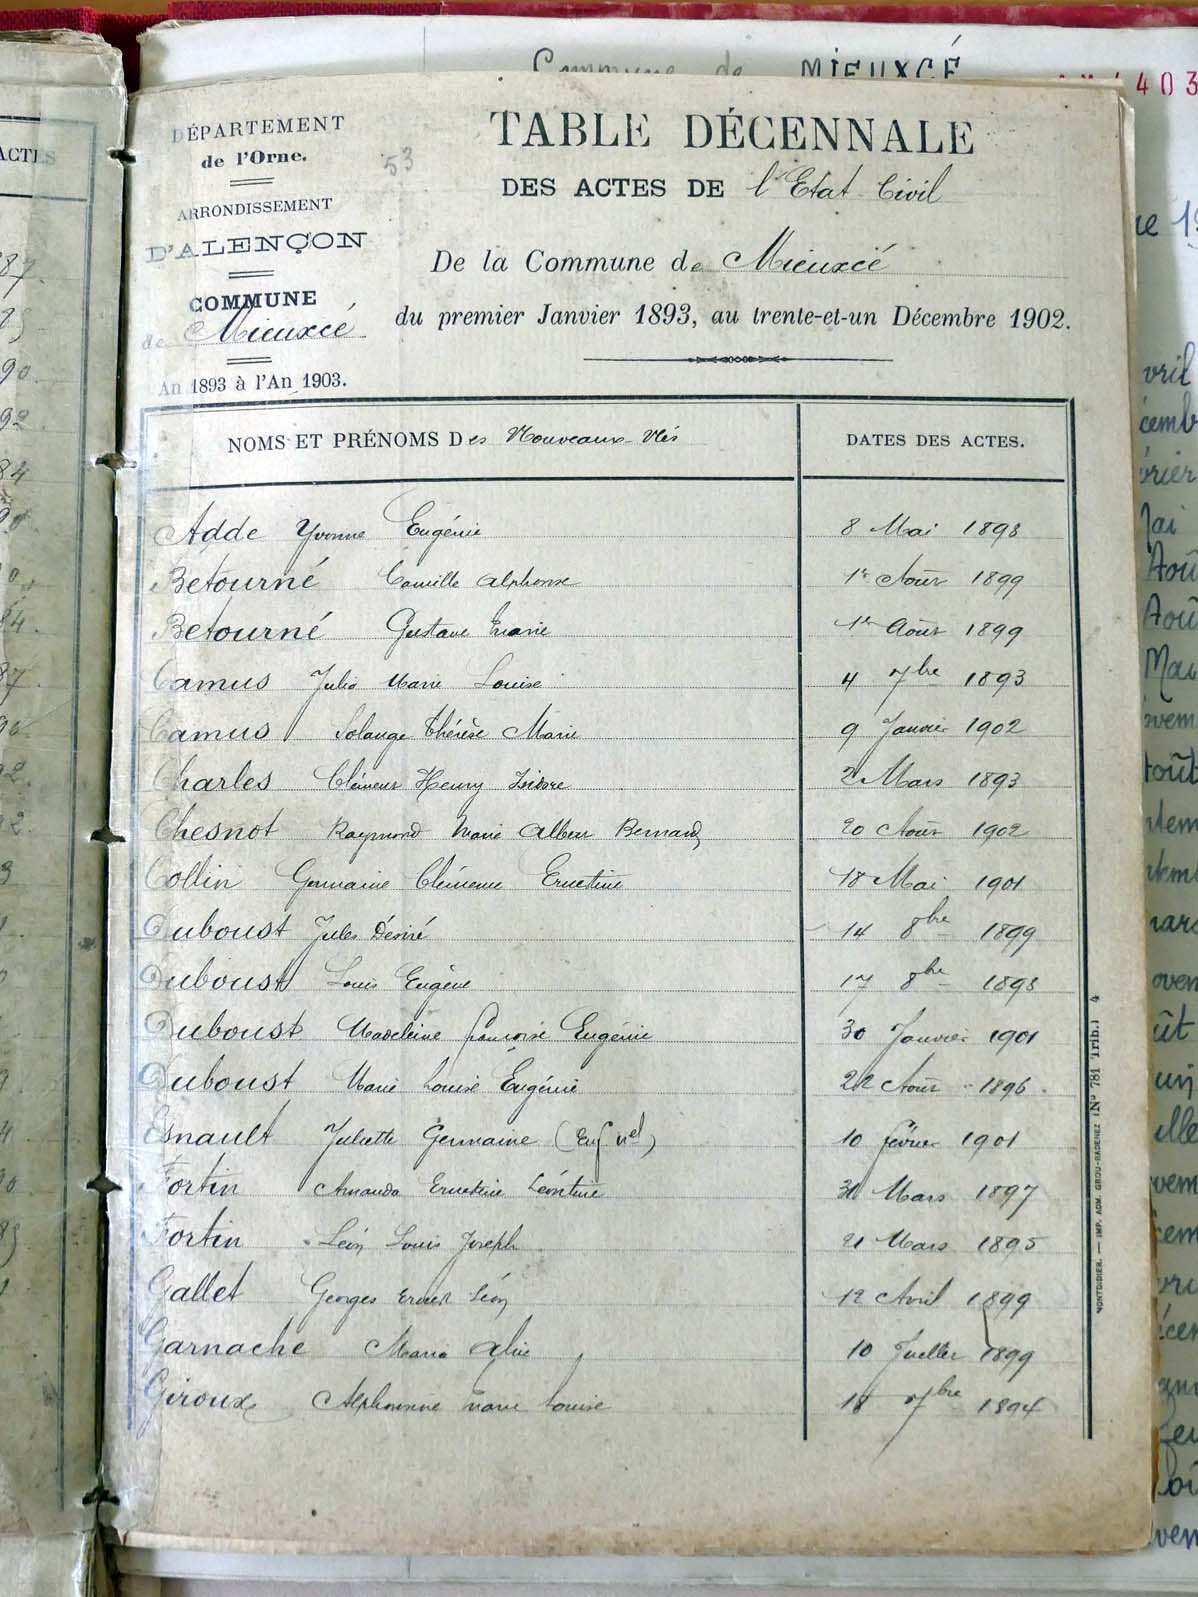 Commune de MIEUXCÉ
403
DÉPARTEMENT
de l'Orne.
53
ARRONDISSEMENT
D'ALENÇON
COMMUNE
de Mieuxcé
An 1893 à l'An 1903.
TABLE DÉCENNALE
DES ACTES DE l'Etat-Civil
De la Commune de Mieuxcé
du premier Janvier 1893, au trente-et-un Décembre 1902.
NOMS ET PRÉNOMS Des Nouveaux-Nés DATES DES ACTES.
Adde Yvonne Eugénie 8 Mai 1898
Betourné Camille Alphonse 1er Août 1899
Betourné Gustave Marie 1er Août 1899
Camus Julia Marie Louise 4 7bre 1893
Camus Solange Thérèse Marie 9 Janvier 1902
Charles Clément Henry Isidore 2 Mars 1893
Chesnot Raymond Marie Albert Bernard 20 Août 1902
Collin Germaine Clémence Ernestine 18 Mai 1901
Duboust Jules Désiré 14 8bre 1899
Duboust Louis Eugène 17 8bre 1898
Duboust Madeleine Françoise Eugénie 30 Janvier 1901
Duboust Marie Louise Eugénie 22 Août 1896
Esnault Juliette Germaine (Enf nel) 10 février 1901
Fortin Amanda Ernestine Léontine 31 Mars 1897
Fortin Léon Louis Joseph 21 Mars 1895
Gallet Georges Ernest Léon 12 Avril 1899
Garnache Maria Alice 10 Juillet 1899
Giroux Alphonsine Marie Louise 18 7bre 1894
MONTDIDIER. — IMP. ADM. GROU-RADENEZ (No 781 Trib.) 4